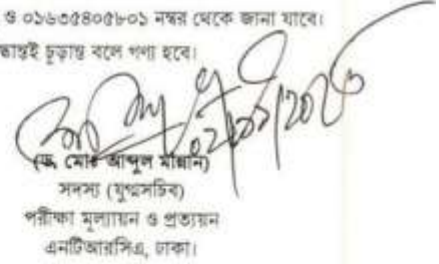 ও ০১৬৩৫৪০৫৮০১ নম্বর থেকে জানা যাবে।
চূড়ান্ত বলে গণ্য হবে।
(ড. মোঃ আব্দুল মান্নান)
সদস্য (যুগ্মসচিব)
পরীক্ষা মূল্যায়ন ও প্রত্যয়ন
এনটিআরসিএ, ঢাকা।